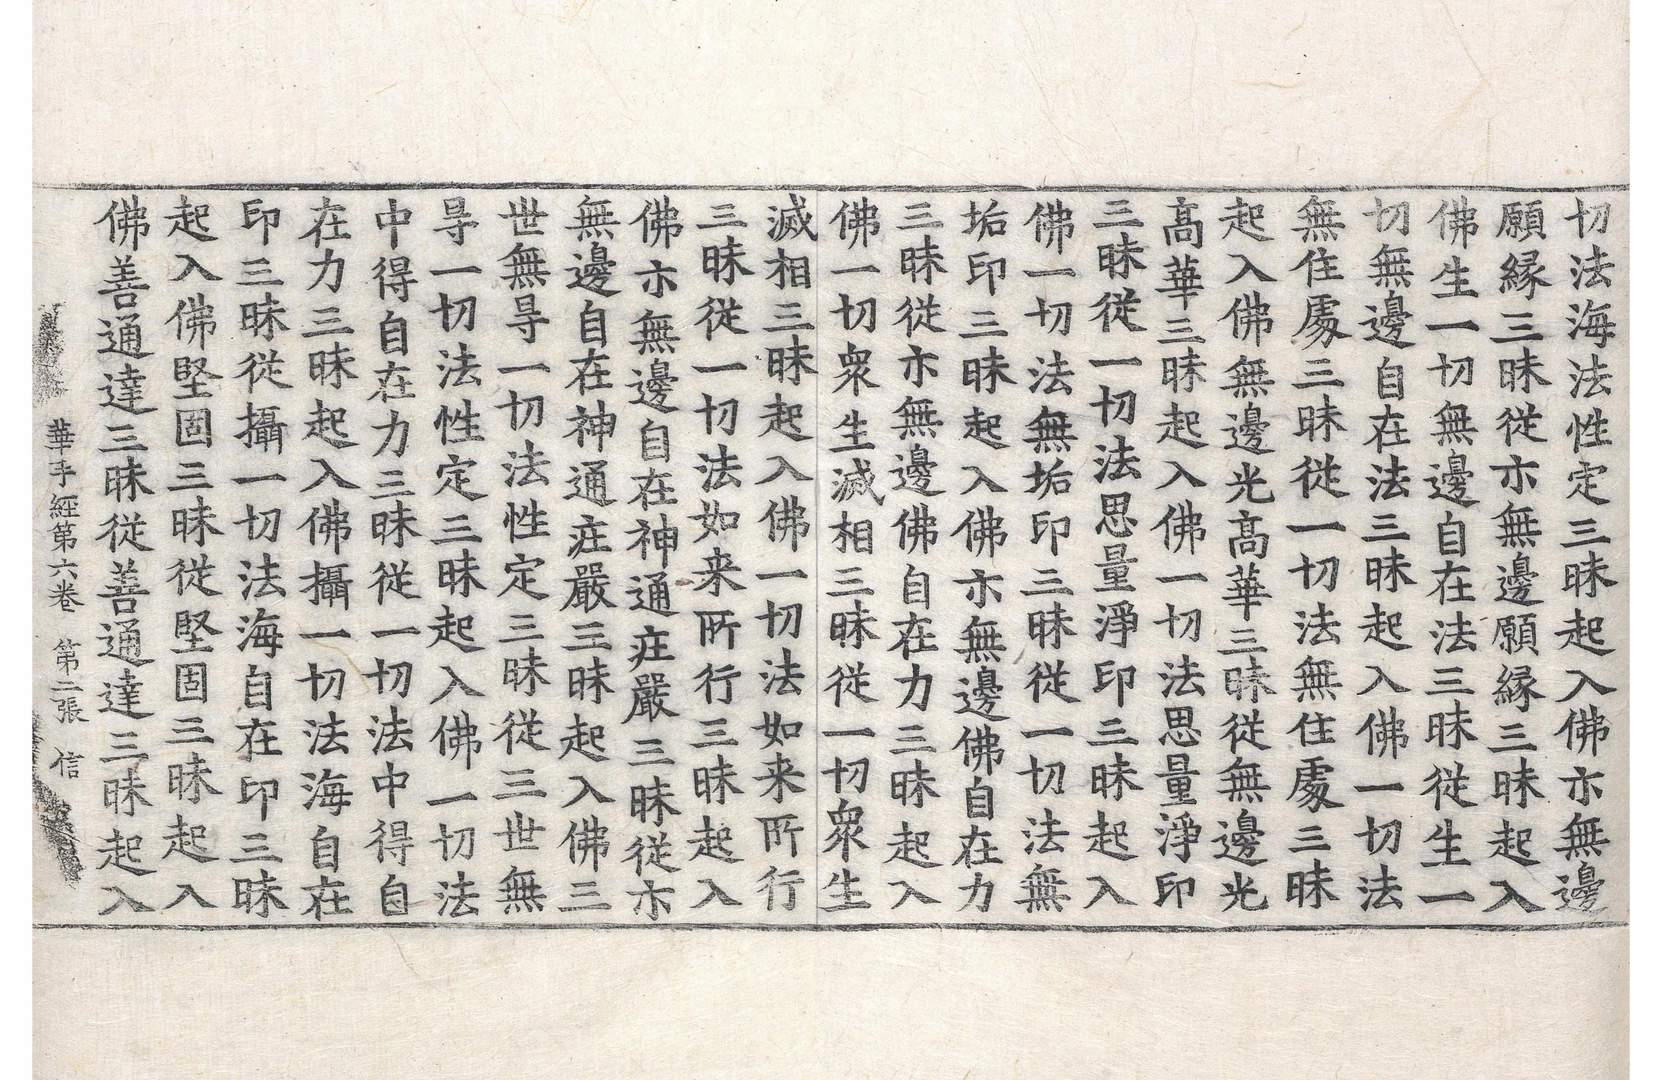 切法海法性定三昧起入佛亦無邊
願緣三昧從亦無邊願緣三昧起入
佛生一切無邊自在法三昧從生一
切無邊自在法三昧起入佛一切法
無住處三昧從一切法無住處三昧
起入佛無邊光髙華三昧從無邊光
髙華三昧起入佛一切法思量淨印
三昧從一切法思量淨印三昧起入
佛一切法無垢印三昧從一切法無
垢印三昧起入佛亦無邊佛自在力
三昧從亦無邊佛自在力三昧起入
佛一切衆生滅相三昧從一切衆生
滅相三昧起入佛一切法如来所行
三昧從一切法如来所行三昧起入
佛亦無邊自在神通㽵嚴三昧從亦
無邊自在神通㽵嚴三昧起入佛三
世無㝵一切法性定三昧從三世無
㝵一切法性定三昧起入佛一切法
中得自在力三昧從一切法中得自
在力三昧起入佛攝一切法海自在
印三昧從攝一切法海自在印三昧
起入佛堅固三昧從堅固三昧起入
佛善通達三昧從善通達三昧起入
華手經第六卷　第二張　信